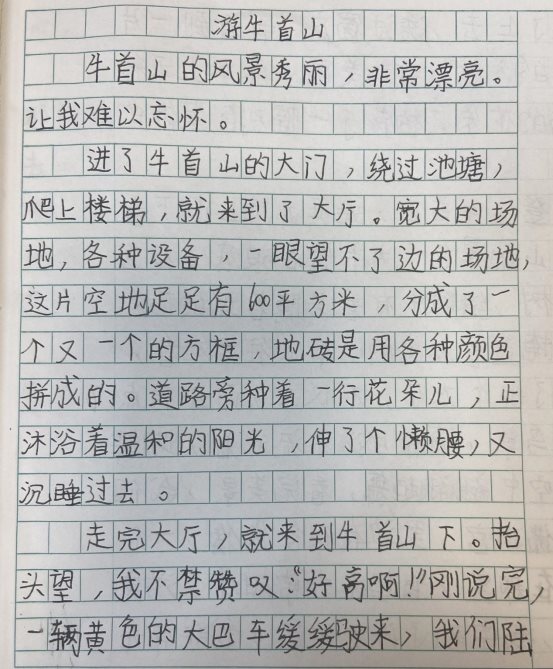 游牛首山
牛首山的风景秀丽，非常漂亮。
让我难以忘怀。
进了牛首山的大门，绕过池塘，
爬上楼梯，就来到了大厅。宽大的场
地，各种设备，一眼望不了边的场地，
这片空地足足有600平方米，分成了一
个又一个的方框，地砖是用各种颜色
拼成的。道路旁种着一行花朵儿，正
沐浴着温和的阳光，伸了个懒腰，又
沉睡过去。
走完大厅，就来到牛首山下。抬
头望，我不禁赞叹：“好高啊！”刚说完，
一辆黄色的大巴车缓缓驶来，我们陆